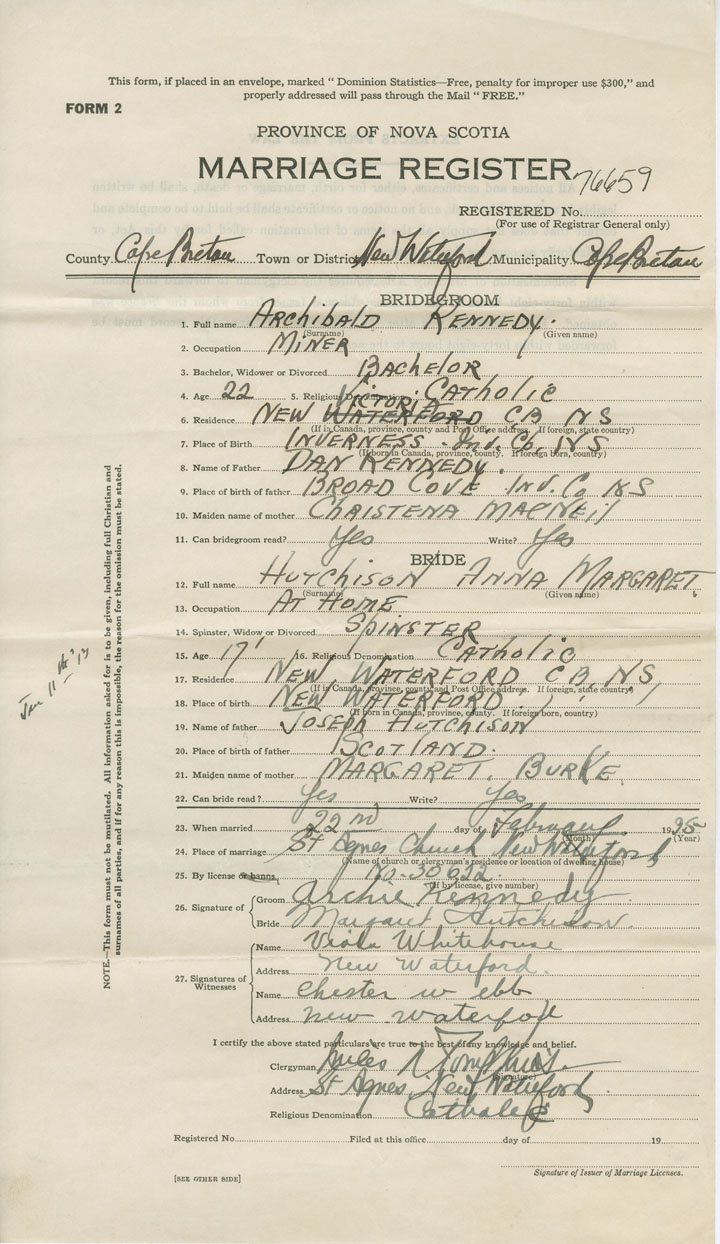 This form, if placed in an envelope, marked "Dominion Statistics—Free, penalty for improper use $300," and
properly addressed will pass through the Mail "FREE."
FORM 2
PROVINCE OF NOVA SCOTIA
MARRIAGE REGISTER 76659
REGISTERED No.
(For use of Registrar General only)
County Cape Breton Town or District New Waterford Municipality Cape Breton
BRIDEGROOM
1. Full name ARCHIBALD KENNEDY.
(Surname) (Given name)
2. Occupation MINER
3. Bachelor, Widower or Divorced BACHELOR
4. Age 22 5. Religious Denomination CATHOLIC
VICTORIA
6. Residence NEW WATERFORD C.B. NS
(If in Canada, province, county and Post Office address. If foreign, state country)
7. Place of Birth INVERNESS - Inv. Co. NS
(If born in Canada, province, county. If foreign born, country)
8. Name of Father DAN KENNEDY.
9. Place of birth of father BROAD COVE INV. Co NS
10. Maiden name of mother CHRISTENA MACNEIL
11. Can bridegroom read? Yes Write? Yes
BRIDE
12. Full name HUTCHISON ANNA MARGARET
(Surname) (Given name)
13. Occupation AT HOME
14. Spinster, Widow or Divorced SPINSTER
15. Age 17 16. Religious Denomination CATHOLIC
17. Residence NEW WATERFORD C.B, NS,
(If in Canada, province, county and Post Office address. If foreign, state country)
18. Place of birth NEW WATERFORD
(If born in Canada, province, county. If foreign born, country)
19. Name of father JOSEPH HUTCHISON
20. Place of birth of father SCOTLAND.
21. Maiden name of mother MARGARET. BURKE
22. Can bride read? Yes Write? Yes
23. When married 22nd day of February 1935
(Month) (Year)
24. Place of marriage St Agnes Church New Waterford
(Name of church or clergyman's residence or location of dwelling house)
25. By license or banns No-30622
(If by license, give number)
26. Signature of Groom Archie Kennedy
Bride Margaret Hutchison.
27. Signatures of Witnesses
Name Viola Whitehouse
Address New Waterford.
Name Chester w ebb
Address new waterford
I certify the above stated particulars are true to the best of my knowledge and belief.
Clergyman
(Signature)
Address St Agnes, New Waterford
Religious Denomination Catholic
Registered No. Filed at this office day of 19
Signature of Issuer of Marriage Licenses.
[SEE OTHER SIDE]
NOTE.—This form must not be mutilated. All information asked for is to be given, including full Christian and
surnames of all parties, and if for any reason this is impossible, the reason for the omission must be stated.